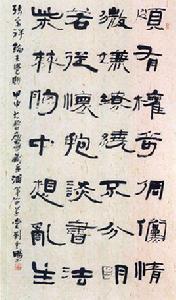 頗有權奇倜儻情
微嫌繚繞不分明
若從懷抱談書法
柴棘胸中想亂生
張宗祥論書絕句 甲申